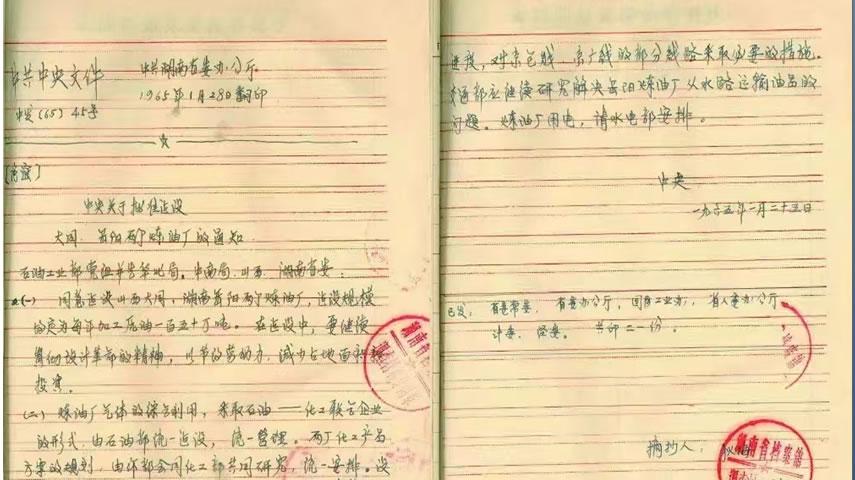 中共中央文件
中共湖南省委办公厅
1965年1月28日翻印
中发(65)45号
[高密]
中央关于批准建设
大同、岳阳两个炼油厂的通知
石油工业部党组并告华北局、中南局、山西、湖南省委:
(一) 同意建设山西大同、湖南岳阳两个炼油厂,建设规模
均定为每年加工原油一百五十万吨。在建设中,要继续
贯彻设计革命的精神,以节约劳动力,减少占地面积和
投资。
(二) 炼油厂气体的综合利用,采取石油——化工联合企业
的形式,由石油部统一建设,统一管理。两厂化工产品
方案的规划,由石油部会同化工部共同研究,统一安排。设
进度,对京包线、京广线的部分线路采取必要的措施。
交通部应继续研究解决岳阳炼油厂从水路运输油品的
问题。炼油厂用电,请水电部安排。
中央
一九六五年一月二十五日
已发:省委常委、省委办公厅,国防工业办,省人委办公厅
计委、经委。共印二一份。
摘抄人:
湖南省档案馆